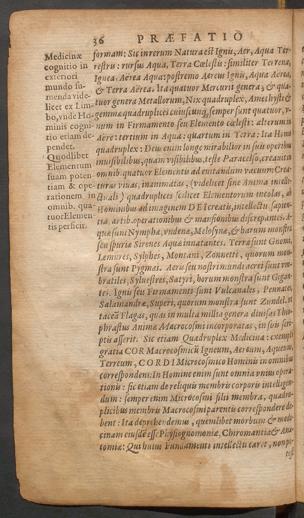 36 PRÆFATIO
Medicinæ
cognitio in
exteriori
mundo su-
menda vide-
licet ex Lim-
bo, vnde Ho-
minis cogni-
tio etiam de-
pendet.
Quodlibet
Elementum
suam poten-
tiam & ope-
rationem in
omnib. qua-
tuor Elemen-
tis perficit.
formam: Sic in rerum Natura est Ignis, Aër, Aqua Ter-
restris: rursus Aqua, Terra Cœlestis: similiter Terrena,
Ignea, Aërea Aqua: postremo Aereus Ignis, Aqua Aërea,
& Terra Aërea. Ita quatuor Mercurii genera, & qua-
tuor genera Metallorum, Nix quadruplex, Amethysti &
gemmæ quadruplices cuiuscunque, semper sunt quatuor, v-
num in Firmamento seu Elemento cœlesti: alterum in
Aëre: tertium in Aqua: quartum in Terra: Ita Homo
quadruplex: Deus enim longe mirabilior in suis operibus
inuisibilibus, quam visibilibus, teste Paracelso, creauit in
omnib. quatuor Elementis ad euitandum vacuum Crea-
turas viuas, inanimatas, (videlicet sine Anima intelle-
ctuali) quadruplices scilicet Elementorum incolas, ab
Hominibus ad imaginem DEI creatis, intellectu, sapien-
tia, artib. operationibus & mansionibus discrepantes. A-
quæ sunt Nymphæ, vndena, Melosynæ, & harum monstra
seu spuriæ Sirenes Aquæ innatantes. Terræ sunt Gnomi,
Lemures, Sylphes, Montani, Zonnetti, quorum mon-
stra sunt Pygmæi. Aëris seu nostri mundi aërei sunt vm-
bratiles, Syluestres, Satyri, horum monstra sunt Gigan-
tes. Ignis seu Firmamenti sunt Vulcanales, Pennates,
Salamandræ, Superi, quorum monstra sunt Zundel.
Flagas, quas in multa millia genera diuisas Theo-
phrastus Animæ Macrocosmi incorporatas, in suis scri-
ptis asserit. Sic etiam Quadruplex Medicina: exempli
gratia COR Macrocosmicū Igneum, Aereum, Aqueum,
Terreum, CORDI Microcosmico Hominis in omnibus
correspondens: In Homine enim sunt omnia vnius opera-
tionis: sic etiam de reliquis membris corporis intelligen-
dum: semper etenim Microcosmi filii membra, quadru-
plicibus membris Macrocosmi parentis correspondere de-
bent: Ita deprehendemus, quemlibet morbum & medi-
cinam eiusdē esse Physiognomoniæ, Chiromantiæ & Ana-
tomiæ: Qui huius Fundamenti intellectu caret, non po-
test